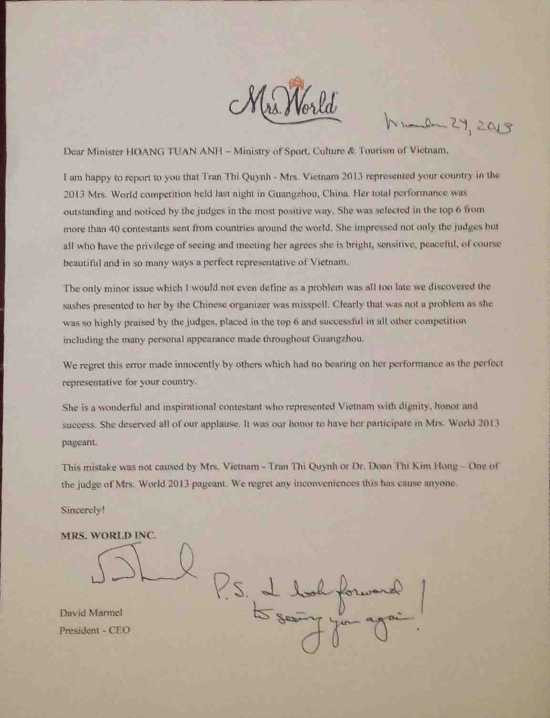 Mrs. World
November 24, 2013
Dear Minister HOANG TUAN ANH – Ministry of Sport, Culture & Tourism of Vietnam,
I am happy to report to you that Tran Thi Quynh - Mrs. Vietnam 2013 represented your country in the
2013 Mrs. World competition held last night in Guangzhou, China. Her total performance was
outstanding and noticed by the judges in the most positive way. She was selected in the top 6 from
more than 40 contestants sent from countries around the world. She impressed not only the judges but
all who have the privilege of seeing and meeting her agrees she is bright, sensitive, peaceful, of course
beautiful and in so many ways a perfect representative of Vietnam.
The only minor issue which I would not even define as a problem was all too late we discovered the
sashes presented to her by the Chinese organizer was misspell. Clearly that was not a problem as she
was so highly praised by the judges, placed in the top 6 and successful in all other competition
including the many personal appearance made throughout Guangzhou.
We regret this error made innocently by others which had no bearing on her performance as the perfect
representative for your country.
She is a wonderful and inspirational contestant who represented Vietnam with dignity, honor and
success. She deserved all of our applause. It was our honor to have her participate in Mrs. World 2013
pageant.
This mistake was not caused by Mrs. Vietnam - Tran Thi Quynh or Dr. Doan Thi Kim Hong – One of
the judge of Mrs. World 2013 pageant. We regret any inconveniences this has cause anyone.
Sincerely!
MRS. WORLD INC.
P.S. I look forward
to seeing you again!
David Marmel
President - CEO